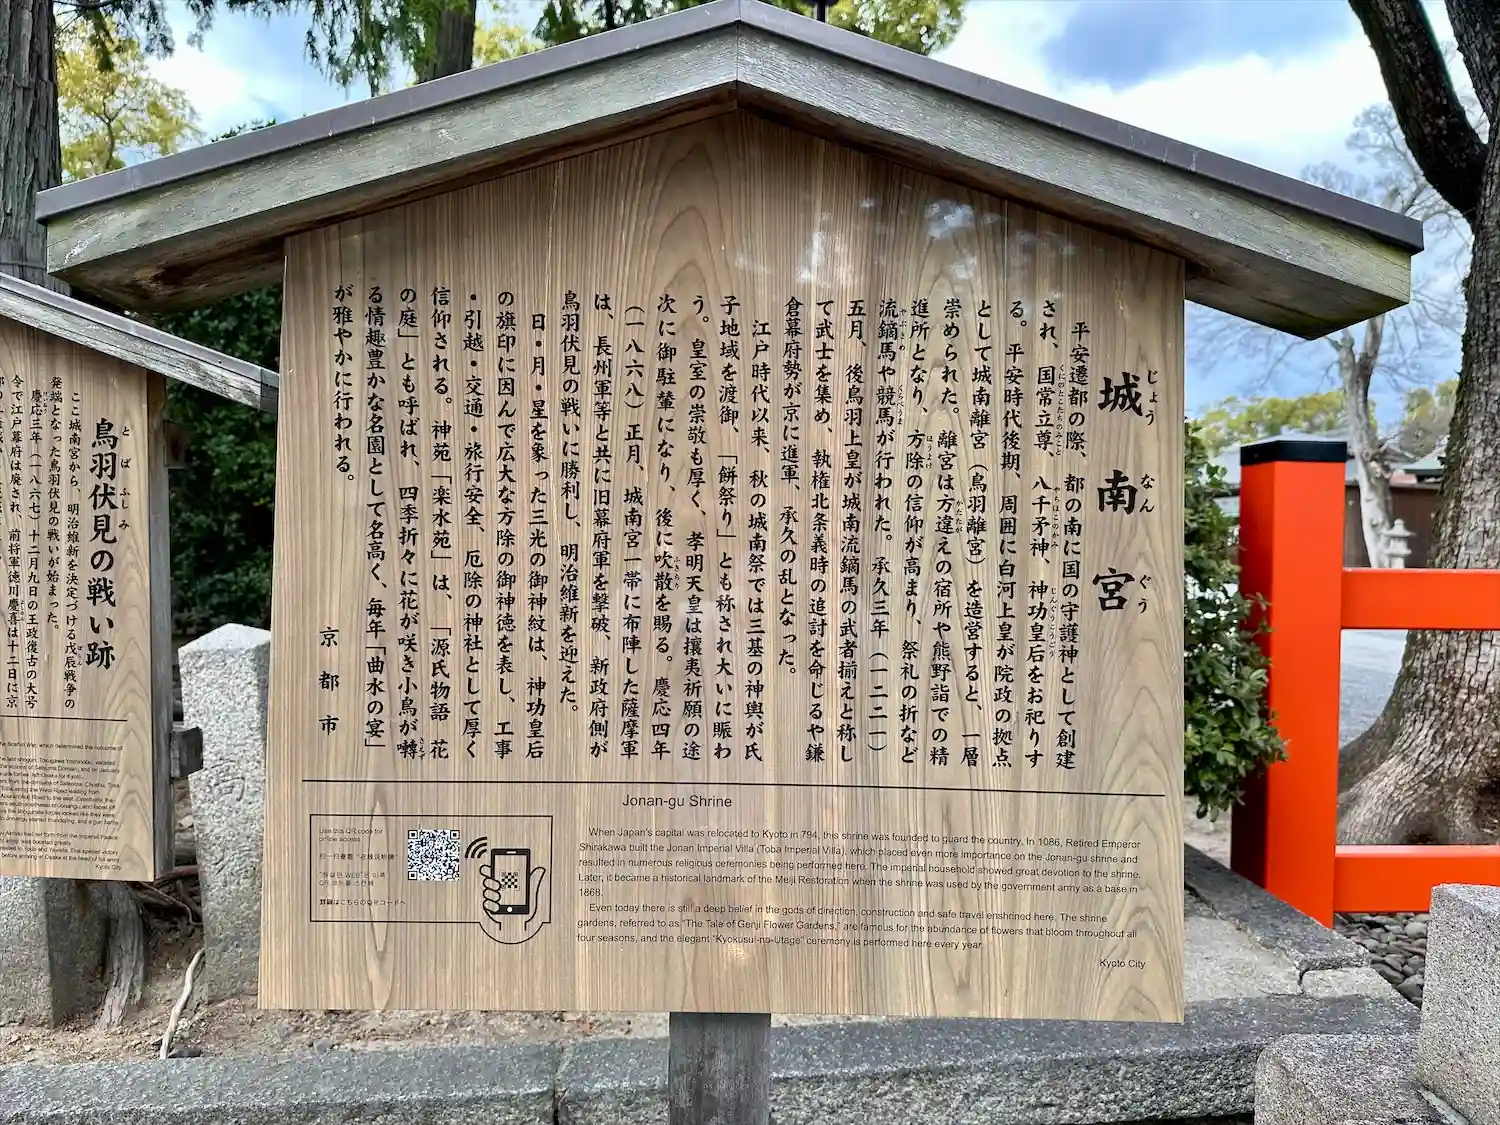 城南宮
じょうなんぐう
平安遷都の際、都の南に国の守護神として創建
され、国常立尊、八千矛神、神功皇后をお祀りす
くにのとこたちのみこと
やちほこのかみ
じんぐうこうごう
る。平安時代後期、周囲に白河上皇が院政の拠点
として城南離宮（鳥羽離宮）を造営すると、一層
崇められた。離宮は方違えの宿所や熊野詣での精
かたたが
進所となり、方除の信仰が高まり、祭礼の折など
ほうよけ
流鏑馬や競馬が行われた。承久三年（一二二一）
やぶさめ
くらべうま
五月、後鳥羽上皇が城南流鏑馬の武者揃えと称し
て武士を集め、執権北条義時の追討を命じるや鎌
倉幕府勢が京に進軍、承久の乱となった。
江戸時代以来、秋の城南祭では三基の神輿が氏
子地域を渡御、「餅祭り」とも称され大いに賑わ
う。皇室の崇敬も厚く、孝明天皇は攘夷祈願の途
次に御駐輦になり、後に吹散を賜る。慶応四年
ふきちり
（一八六八）正月、城南宮一帯に布陣した薩摩軍
は、長州軍等と共に旧幕府軍を撃破、新政府側が
鳥羽伏見の戦いに勝利し、明治維新を迎えた。
日・月・星を象った三光の御神紋は、神功皇后
の旗印に因んで広大な方除の御神徳を表し、工事
・引越・交通・旅行安全、厄除の神社として厚く
信仰される。神苑「楽水苑」は、「源氏物語 花
の庭」とも呼ばれ、四季折々に花が咲き小鳥が囀
さえず
る情趣豊かな名園として名高く、毎年「曲水の宴」
が雅やかに行われる。
京都市
Jonan-gu Shrine
When Japan's capital was relocated to Kyoto in 794, this shrine was founded to guard the country. In 1086, Retired Emperor
Shirakawa built the Jonan Imperial Villa (Toba Imperial Villa), which placed even more importance on the Jonan-gu shrine and
resulted in numerous religious ceremonies being performed here. The imperial household showed great devotion to the shrine.
Later, it became a historical landmark of the Meiji Restoration when the shrine was used by the government army as a base in
1868.
Even today there is still a deep belief in the gods of direction, construction and safe travel enshrined here. The shrine
gardens, referred to as "The Tale of Genji Flower Gardens," are famous for the abundance of flowers that bloom throughout all
four seasons, and the elegant "Kyokusui-no-Utage" ceremony is performed here every year.
Kyoto City
Use this QR code for
online access
扫一扫查看"在线说明牌"
"해설판 WEB"은 이쪽
QR 코드를 스캔해
詳細はこちらのQRコードへ
鳥羽伏見の戦い跡
とばふしみ
ここ城南宮から、明治維新を決定づける戊辰戦争の
ぼしん
発端となった鳥羽伏見の戦いが始まった。
慶応三年（一八六七）十二月九日の王政復古の大号
令で江戸幕府は廃され、前将軍徳川慶喜は十二日に京
Kyoto City